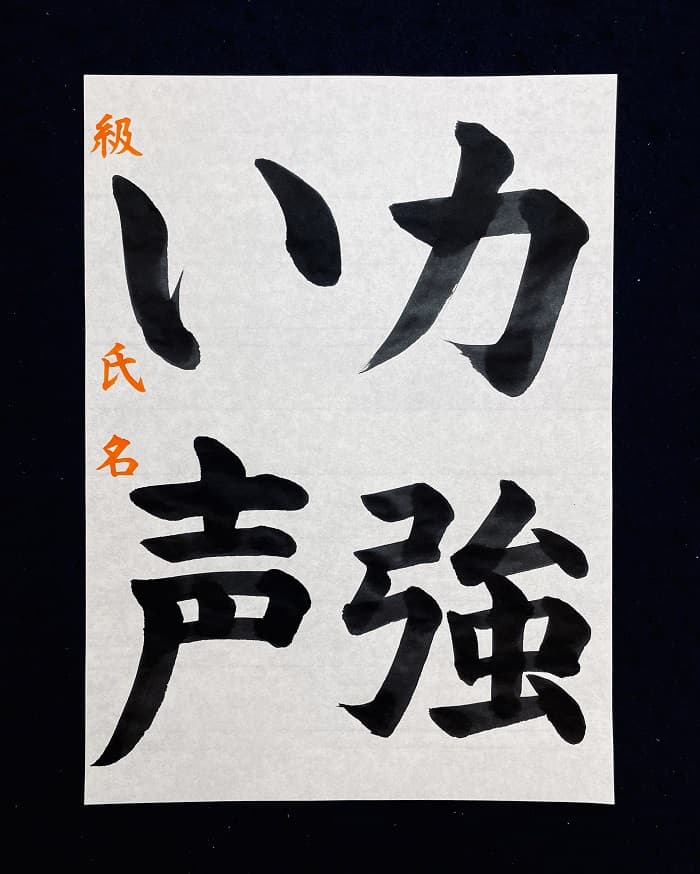 力強
い声
級 氏名